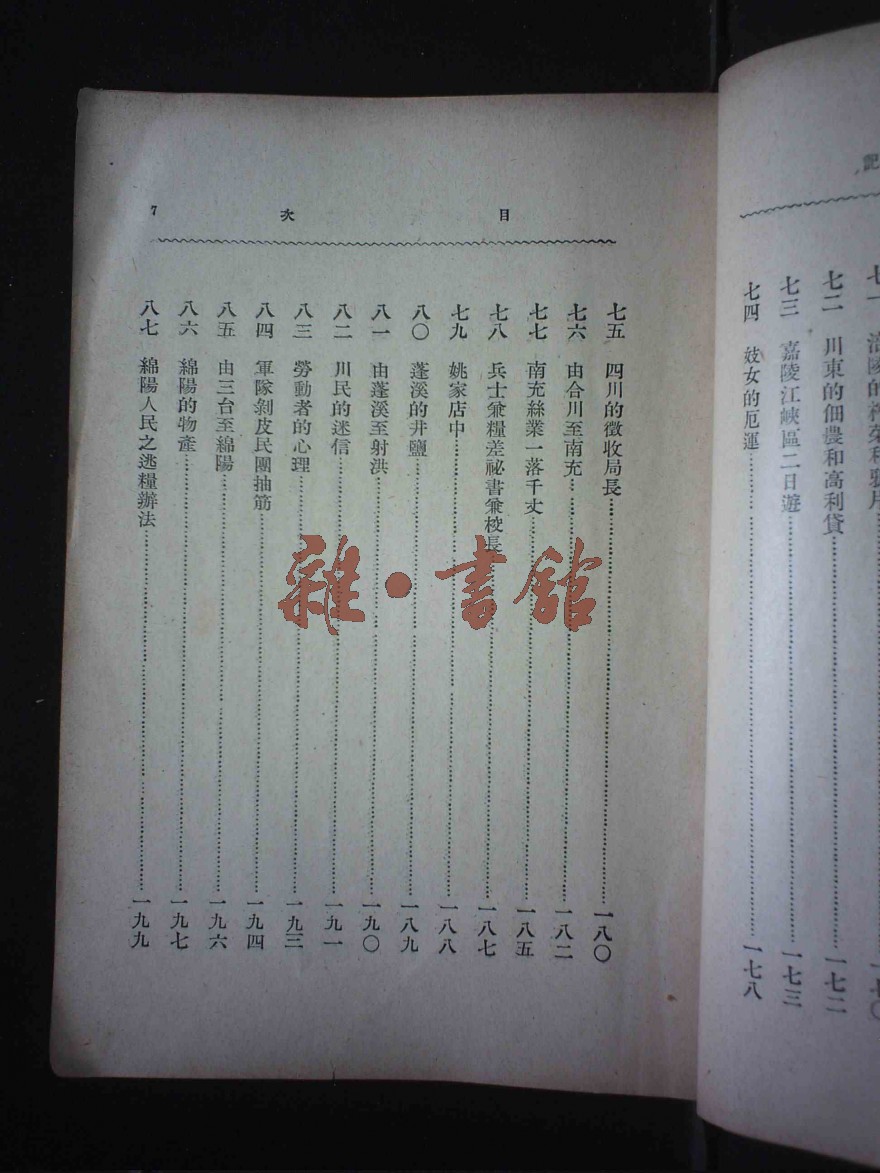 七二 川東的佃農和高利貸……一七二
七三 嘉陵江峽區二日遊……一七三
七四 妓女的厄運……一七八
目 次 7
七五 四川的徵收局長……一八〇
七六 由合川至南充……一八二
七七 南充絲業一落千丈……一八五
七八 兵士兼糧差祕書兼校長……一八七
七九 姚家店中……一八八
八〇 蓬溪的井鹽……一八九
八一 由蓬溪至射洪……一九〇
八二 川民的迷信……一九一
八三 勞動者的心理……一九三
八四 軍隊剝皮民團抽筋……一九四
八五 由三台至綿陽……一九六
八六 綿陽的物產……一九七
八七 綿陽人民之逃糧辦法……一九九
雜·書館